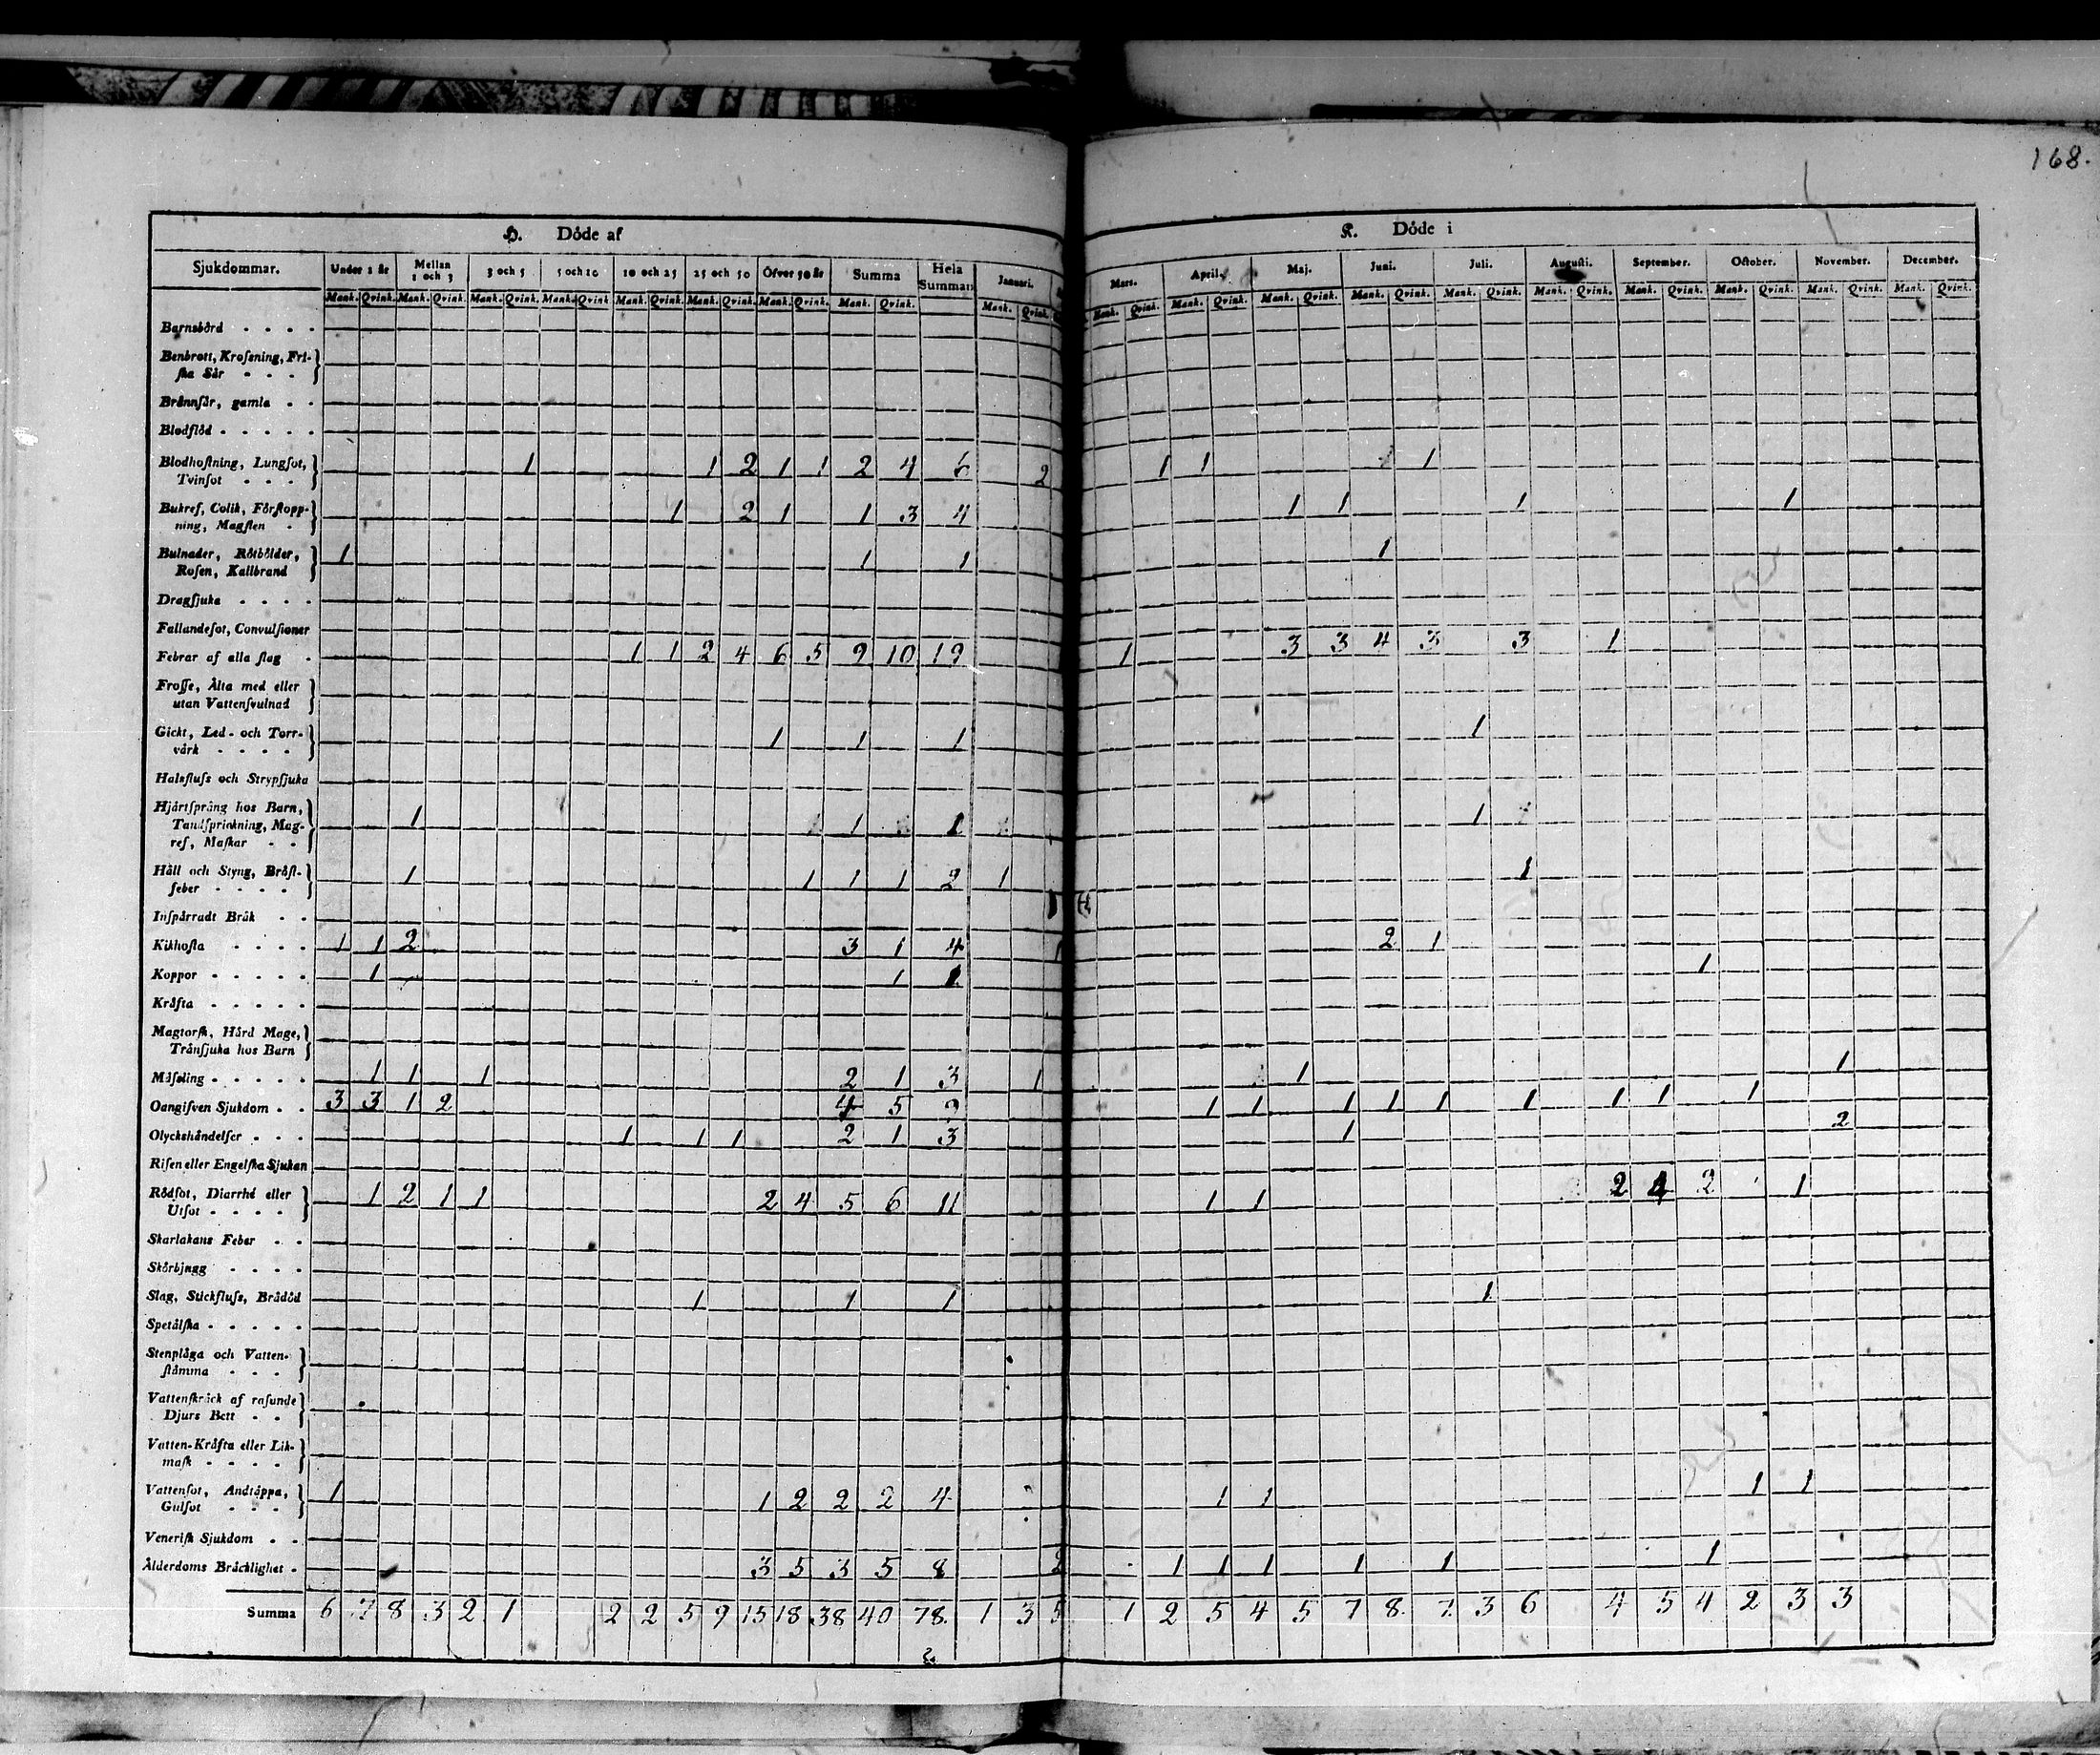 168.
H. Döde af
K. Döde i
Sjukdommar. Under 1 år Mellan 1 och 3 3 och 5 5 och 10 10 och 25 25 och 50 Öfver 50 år Summa Hela Summan Januari. Mars. April. Maj. Juni. Juli. Augusti. September. October. November. December.
Mank. Qvink. Mank. Qvink. Mank. Qvink. Mank. Qvink. Mank. Qvink. Mank. Qvink. Mank. Qvink. Mank. Qvink. Mank. Qvink. Mank. Qvink. Mank. Qvink. Mank. Qvink. Mank. Qvink. Mank. Qvink. Mank. Qvink. Mank. Qvink. Mank. Qvink. Mank. Qvink. Mank. Qvink.
Barnsbörd
Benbrott, Krosſning, Fri-
ſka Sår
Brännſår, gamla
Blodflöd
Blodhoſtning, Lungſot,
Tvinſot 1 1 2 1 1 2 4 6 2 1 1 1
Bukref, Colik, Förſtopp-
ning, Magſten 1 2 1 1 3 4 1 1 1 1
Bulnader, Rötbölder,
Roſen, Kallbrand 1 1 1 1
Dragſjuka
Fallandeſot, Convulſioner
Febrar af alla ſlag 1 1 2 4 6 5 9 10 19 1 3 3 4 3 3 1
Froſſe, Älta med eller
utan Vattenſvulnad
Gickt, Led- och Torr-
värk 1 1 1 1
Halsfluſs och Strypſjuka
Hjärtſprång hos Barn,
Tandſprickning, Mag-
ref, Maſkar 1 1 1 1
Håll och Styng, Bröſt-
feber 1 1 1 1 2 1 1
Inſpärradt Bråk
Kikhoſta 1 1 2 3 1 4 1 2 1
Koppor 1 1 1 1
Kräfta
Magtorſk, Hård Mage,
Tränſjuka hos Barn
Mäſsling 1 1 1 2 1 3 1 1 1
Oangifven Sjukdom 3 3 1 2 4 5 9 1 1 1 1 1 1 1 1 1
Olyckshändelſer 1 1 1 2 1 3 1 2
Riſen eller Engelſka Sjukan
Rödſot, Diarrhé eller
Utſot 1 2 1 1 2 4 5 6 11 1 1 2 4 2 1
Skarlakans Feber
Skörbjugg
Slag, Stickfluſs, Brådöd 1 1 1 1
Spetälſka
Stenplåga och Vatten-
ſtämma
Vattenſkräck af raſande
Djurs Bett
Vatten-Kräfta eller Lik-
maſk
Vattenſot, Andtäppa,
Gulſot 1 1 2 2 2 4 1 1 1 1
Veneriſk Sjukdom
Ålderdoms Bräcklighet 3 5 3 5 8 2 1 1 1 1 1 1
Summa 6 7 8 3 2 1 2 2 5 9 15 18 38 40 78. 1 3 5 1 2 5 4 5 7 8. 7. 3 6 4 5 4 2 3 3